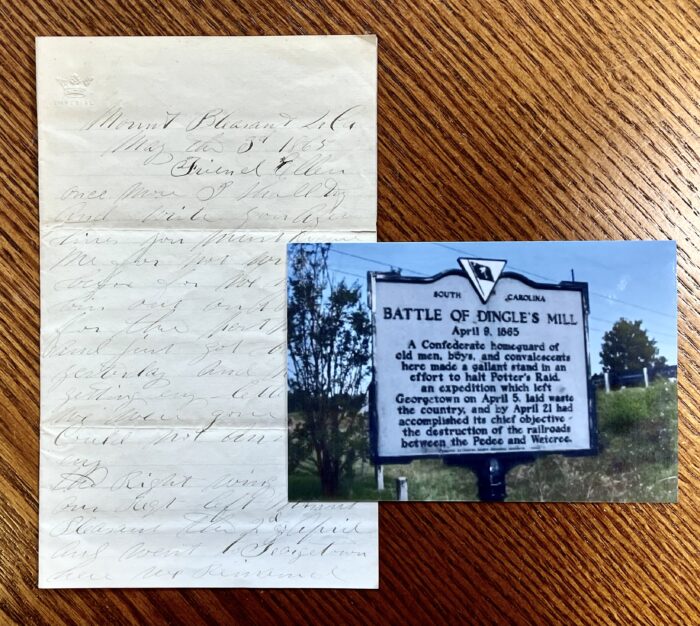 Mount Pleasant S Ca
May the 3d 1865
Friend Ellen
once more I shall try
and write you a few
lines you must
me for not
before for we
been out on
for the last
and just got
yesterday and
getting my
we were gone
Could not an
my
The Right wing
our Regt left Mount
Pleasant the 2d April
and went to Georgetown
here we remained
SOUTH CAROLINA
BATTLE OF DINGLE'S MILL
April 9, 1865
A Confederate homeguard of
old men, boys, and convalescents
here made a gallant stand in an
effort to halt Potter's Raid,
an expedition which left
Georgetown on April 5, laid waste
the country, and by April 21 had
accomplished its chief objective -
the destruction of the railroads
between the Pedee and Wateree.